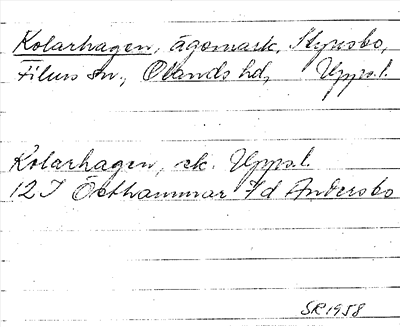 Kolarhagen, ägomark, Styrsbo,
Films sn., Olands hd, Upps.l.
Kolarhagen, ek. Upps.l.
12 I Östhammar 7d Andersbo
SR 1958